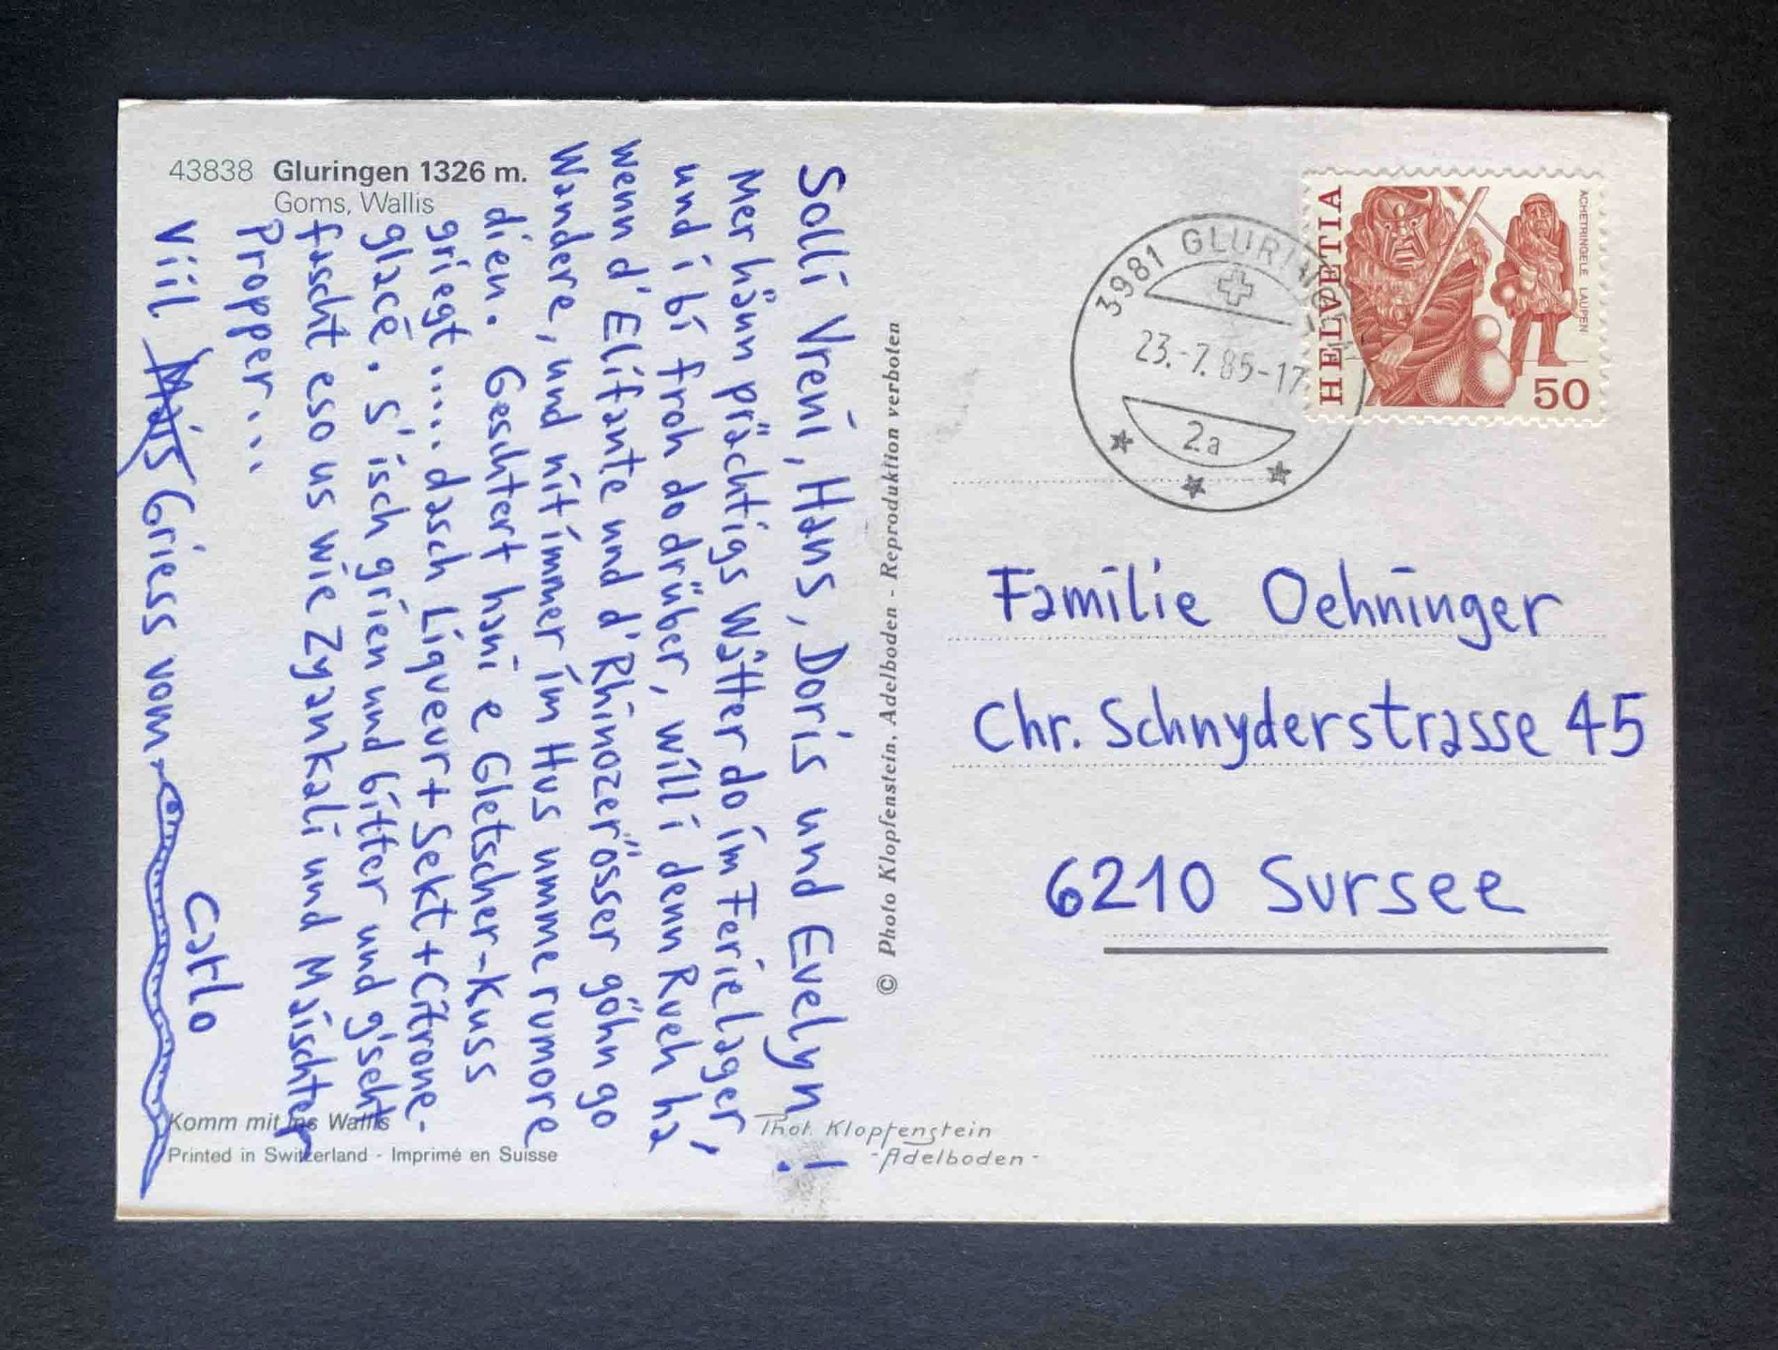 43838 Gluringen 1326 m.
Goms, Wallis
Solli Vreni, Hans, Doris und Evelyn!
Mer hänn prächtigs Wätter do im Ferielager,
und i bi froh do drüber, will i denn Rueh ha
wenn d'Elifante und d'Rhinozerösser göhn go
Wandere, und nit immer im Hus umme rumore
dien. Geschtert hani e Gletscher-Kuss
griegt..... dasch Liqueur + Sekt + Citrone-
glacé. S'isch grien und bitter und g'seht
fascht eso us wie Zyankali und Maischter
Propper...
Viil Griess vom
Carlo
Komm mit ins Wallis
Printed in Switzerland - Imprimé en Suisse
© Photo Klopfenstein, Adelboden - Reproduktion verboten
Phot. Klopfenstein
-Adelboden-
3981 GLURINGEN
23.-7.85-17
2a
HELVETIA
ACHETRINGELE LAUPEN
50
Familie Oehninger
Chr. Schnyderstrasse 45
6210 Sursee